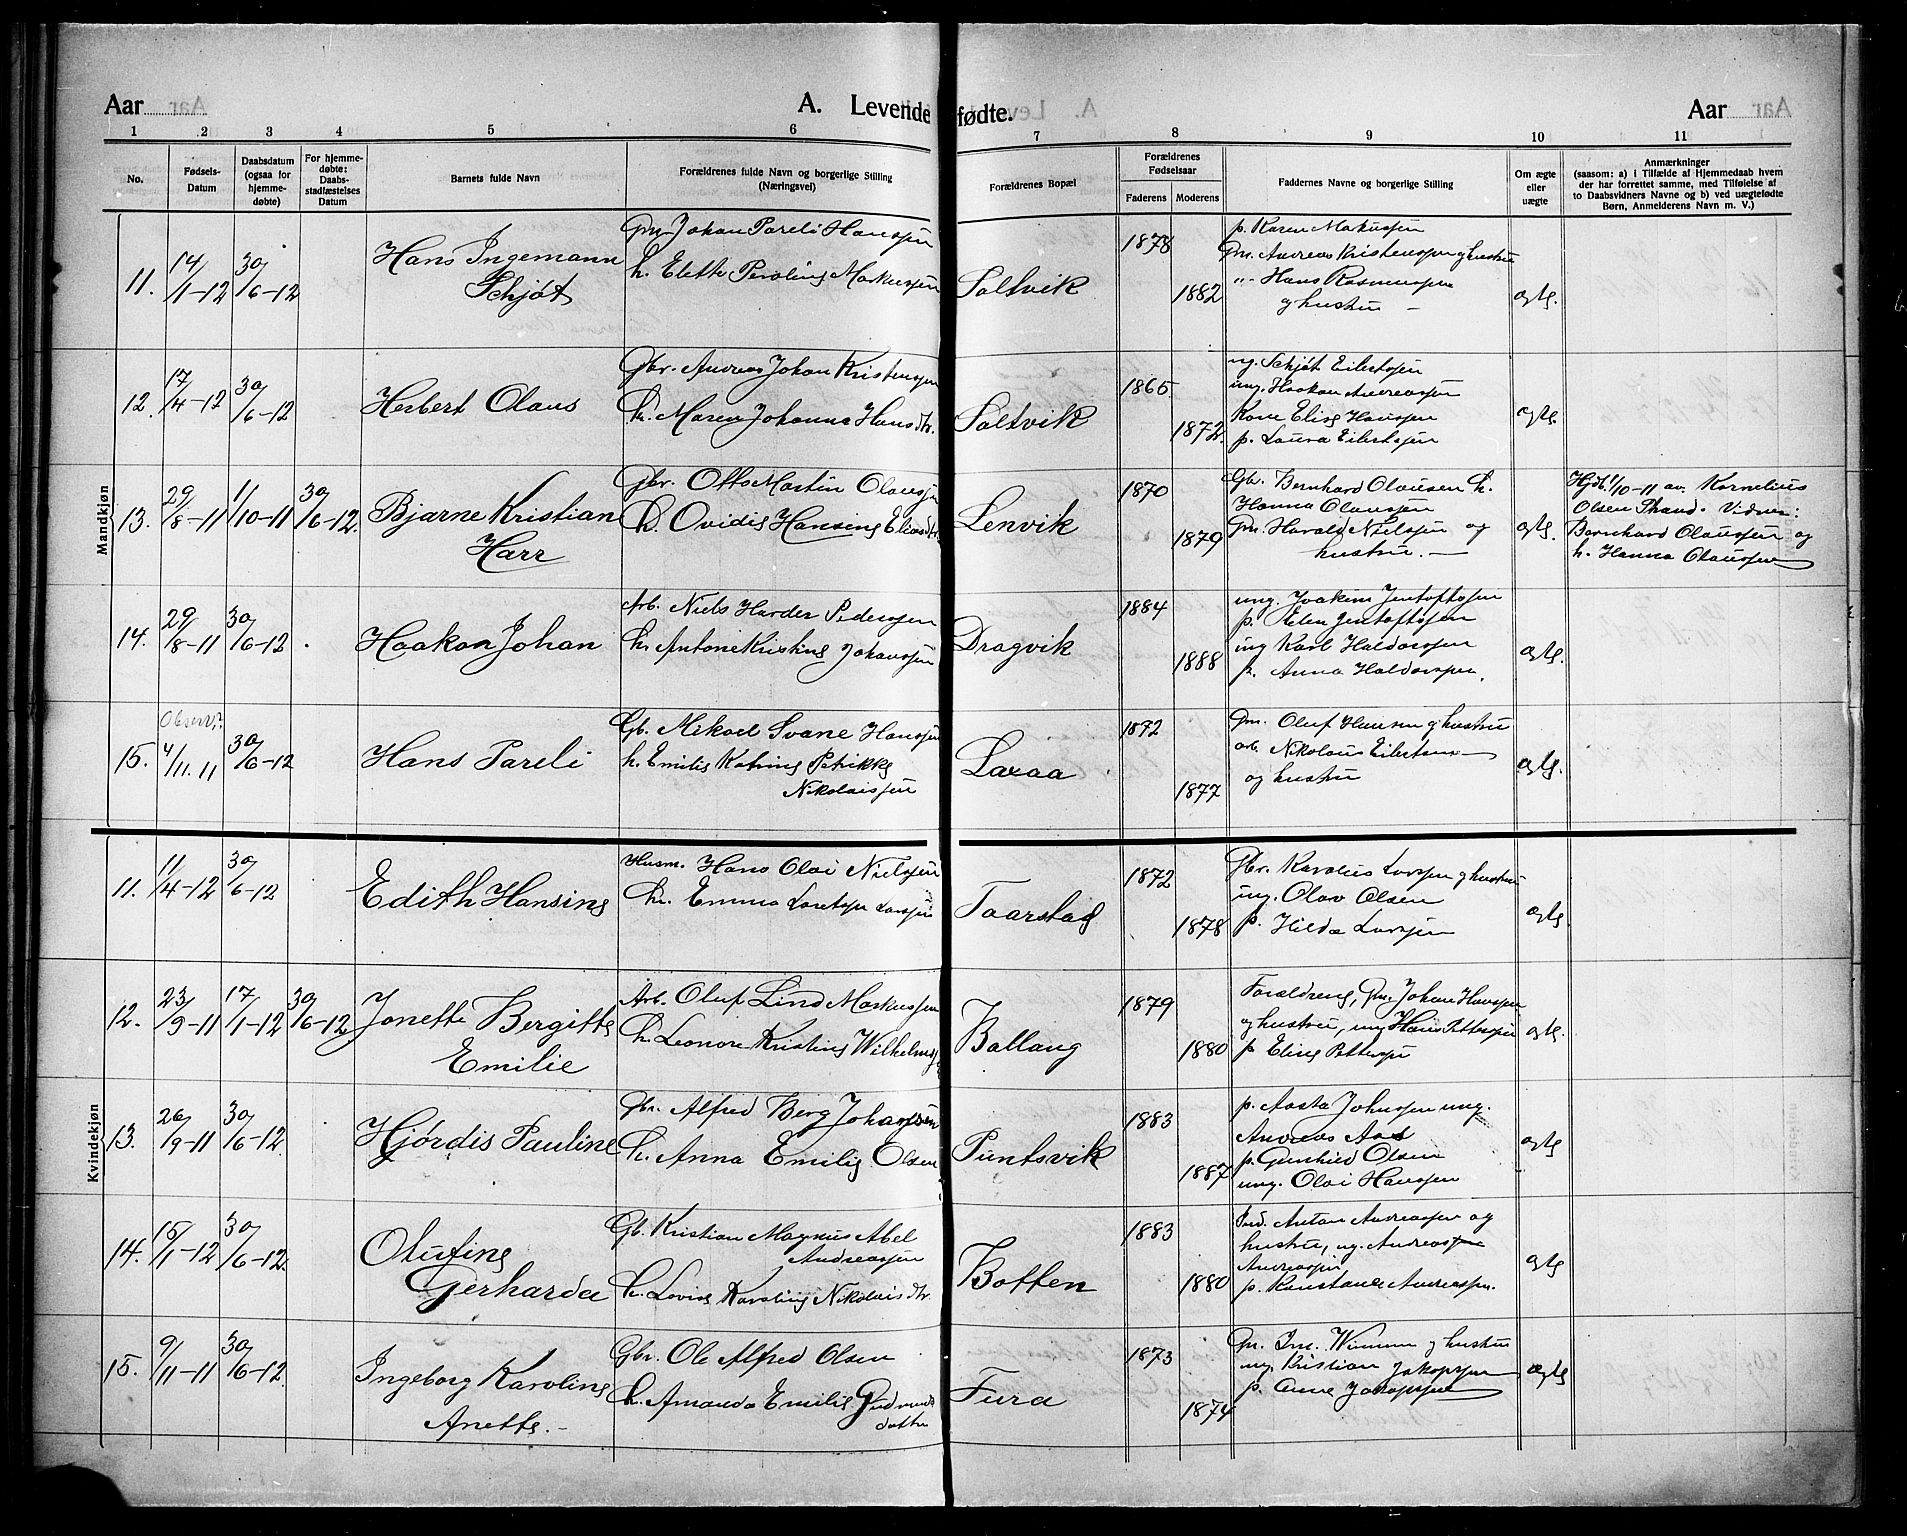 Aar
A. Levendefødte.
Aar
1 2 3 4 5 6 7 8 9 10 11
No.
Fødsels-Datum
Daabsdatum (ogsaa for hjemme-døbte)
For hjemme-døbte: Daabs-stadfæstelses Datum
Barnets fulde Navn
Forældrenes fulde Navn og borgerlige Stilling (Næringsvei)
Forældrenes Bopæl
Forældrenes Fødselsaar
Faderens Moderens
Faddernes Navne og borgerlige Stilling
Om ægte eller uægte
Anmærkninger
(saasom: a) i Tilfælde af Hjemmedaab hvem
der har forrettet samme, med Tilføielse af
to Daabsvidners Navne og b) ved uægtefødte
Børn, Anmelderens Navn m. V.)
Mandkjøn
11. 14/1-12 30/6-12 Hans Ingemann Schjøt
Gm. Johan Pareli Hanssen
h. Elette Peroline Markussen
Saltvik 1878 1882
p. Karen Markussen
Gm. Andreas Kristenssen og hustru
"- Hans Rasmussen
og hustru -
ægte.
12. 17/4-12 30/6-12 Herbert Olaus
Gbr. Andreas Johan Kristenssen
h. Maren Johanna Hansdtr.
Saltvik 1865 1872.
ug. Schjøt Eilertsen
ung. Haakon Andreassen
Kone Elise Hanssen
p. Laura Eilertsen
ægte.
13. 29/8-11 1/10-11 30/6-12. Bjarne Kristian Harr
Gbr. Otto Martin Olaussen
h. Ovidie Hansine Eliasdtr.
Lenvik 1870 1879
Gbr. Bernhard Olausen h.
Hanna Olaussen
Gm. Harald Nielssen og
hustru. -
ægte.
Hjdb. 1/10-11 av. Kornelius
Olsen Strand. Vidner:
Bernhard Olaussen og
h. Hanna Olaussen
14. 29/8-11 30/6-12 Haakon Johan
Arb. Niels Harder Pederssen
h. Antone Kristine Johanssen
Dragvik 1884 1888
ung. Joakim Jentoftsen
p. Elen Jentoftsen
ung Karl Haldorssen
p. Anna Haldorssen.
ægte.
Observ.?
15. 4/11.11 30/6-12 Hans Pareli
Gb. Mikael Svane Hanssen
h. Emilie Katrine Petrikke
Nikolaissen
Laxaa 1872 1877
Gm. Oluf Hansen og hustru
arb. Nikolaus Eilertsen
og hustru
ægte.
Kvindekjøn
11. 11/4-12 30/6-12 Edith Hansine
Husm. Hans Olai Nielssen
h. Emma Loretse Larssen
Taarstad 1872 1878
Gbr. Karolius Larssen og hustru
ung. Olav Olsen
p. Hilda Larssen
ægte
12. 23/9-11 17/1-12 30/6-12 Jonette Bergitte Emilie
Arb. Oluf Lind Markussen
h. Leonore Kristine Wilhelms
Ballang 1879 1880
Forældrene, Gm. Johan Hanssen
og hustru, ung Hans Petterssen
p. Eline Petterssen
ægte.
13. 26/9-11 30/6-12. Hjørdis Pauline
Gbr. Alfred Berg Johanssen
h. Anna Emilie Olsen
Puntsvik 1883 1887
p. Aasta Johnssen ung.
Andreas Aas
p. Gunhild Olsen
ung. Olai Hanssen
ægte
14. 15/1-12 30/6-12. Olufine Gerharda
Gb. Kristian Magnus Abel
Andreassen
h. Lovise Karoline Nikolaisdtr.
Botten 1883 1880
Ind. Anton Andreassen og
hustru, ug. Andreas
Andreassen
p. Konstanse Andreassen.
ægte
15. 9/11-11 30/6-12. Ingeborg Karoline Anette. -
Gbr. Ole Alfred Olsen
h. Amanda Emilie Gudmunds
datter
Fura 1873 1874
ug. Kristian Jakopssen
p. Anne Jakopssen
ægte